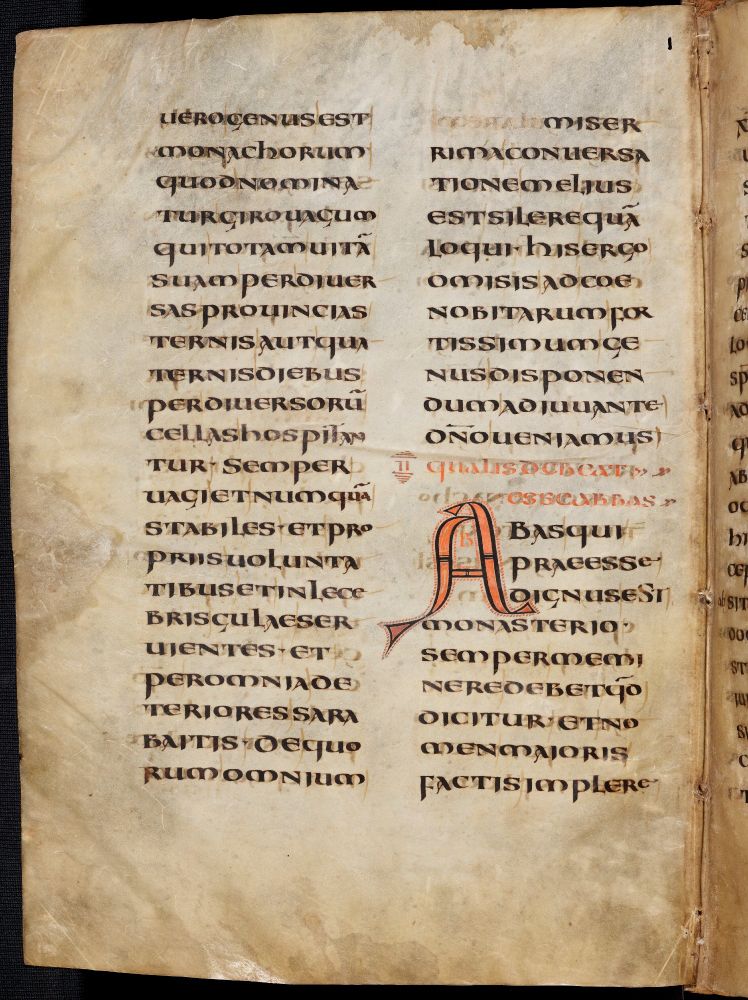 UERO GENUS EST
MONACHORUM
QUOD NOMINA
TUR GIROUAGUM
QUI TOTAM UITĀ
SUAM PER DIUER
SAS PROUINCIAS
TERNIS AUT QUA
TERNIS DIEBUS
PER DIUERSORŪ
CELLAS HOSPITAN
TUR· SEMPER
UAGI ET NUMQUĀ
STABILES· ET PRO
PRIIS UOLUNTA
TIBUS ET INLECE
BRIS GULAE SER
UIENTES· ET
PER OMNIA DE
TERIORES SARA
BAITIS· DE QUO
RUM OMNIUM
MISER
RIMA CONUERSA
TIONEM ELIUS
EST SILERE QUĀ
LOQUI· HIS ERGO
OMISIS AD COE
NOBITARUM FOR
TISSIMUM GE
NUS DISPONEN
DUM ADIUUANTE
DÑO UENIAMUS
II QUALIS DEBEAT
ESSE ABBAS
ABBAS QUI
PRAEESSE
DIGNUS EST
MONASTERIO·
SEMPER MEMI
NERE DEBET QĐO
DICITUR· ET NO
MEN MAIORIS
FACTIS IMPLERE